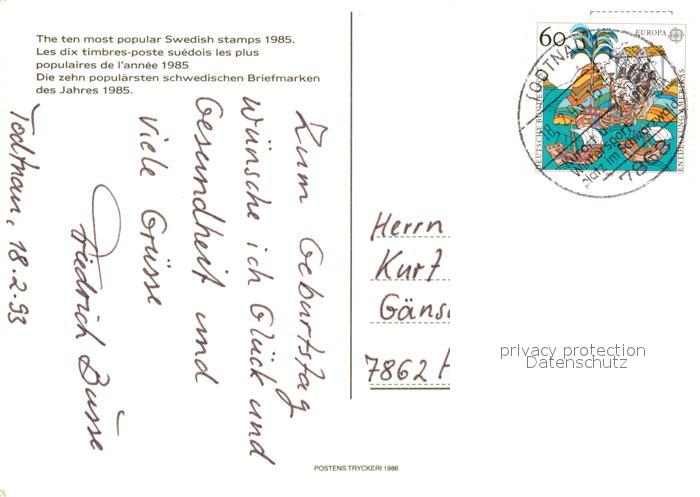 The ten most popular Swedish stamps 1985.
Les dix timbres-poste suédois les plus
populaires de l'année 1985
Die zehn populärsten schwedischen Briefmarken
des Jahres 1985.
Zum Geburtstag
wünsche ich Glück und
Gesundheit und
Viele Grüsse
Friedrich Büsse
Todtnau, 18.2.93
60
EUROPA
DEUTSCHE BUNDESPOST
ENTDECKUNG AMERIKAS
TODTNAU
Wintersport
platz im Schwarzwald
7868
Herrn
Kurt
Gäns
7862 H
privacy protection
Datenschutz
POSTENS TRYCKERI 1986